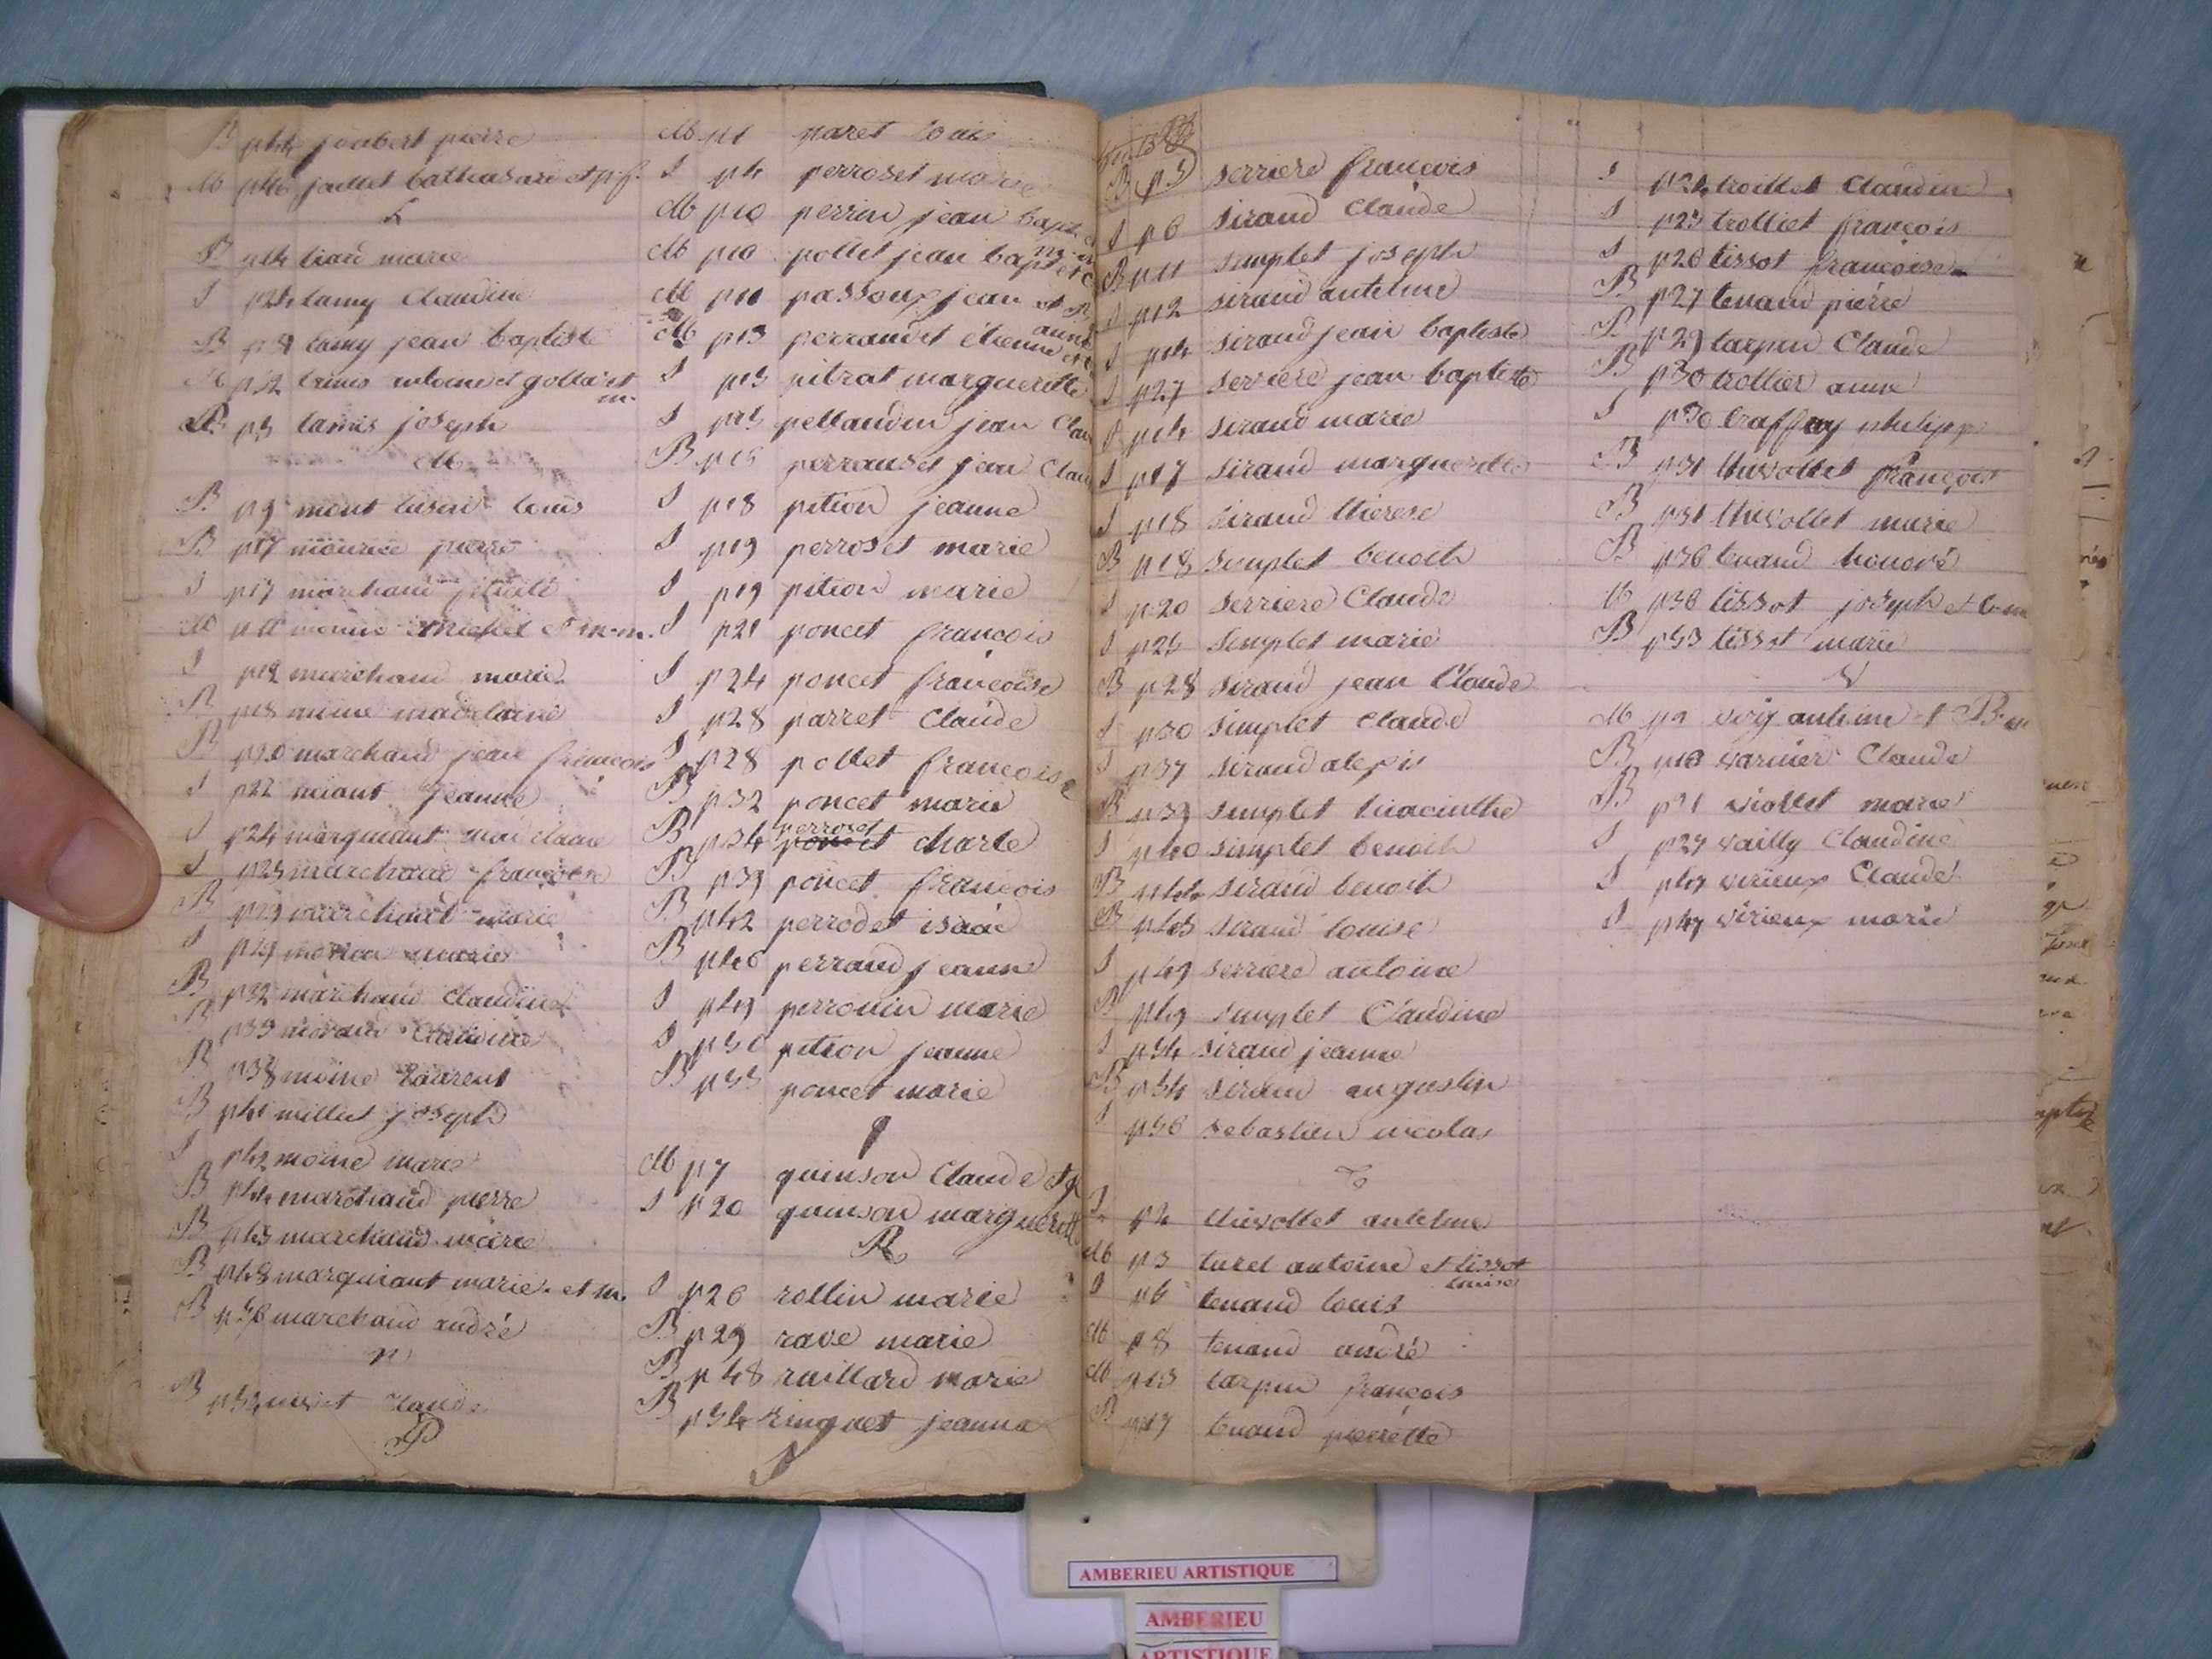 B p44 joubert pierre
M p46 jaillet balthasard et p.f.
L
B p14 liard marie
S p24 lamy Claudine
B p31 lamy jean baptiste
M p32 antoine et
B p5 joseph
M
B p9 mont louis
B p17 maurice pierre
S p17 marchand
M michel et m.m.
S p18 marchand marie
B p18 madelaine
B p20 marchand jean francois
S p22 Jeanne
S p24 marguenant
S p25 marchand françoise
B p29 marchand marie
S p29 marie
B p32 marchand Claudine
B p35 Claudine
B p38 moine Laurent
B p41 millet joseph
S p42 moine marie
B p44 marchand pierre
B p45 marchand marie
B p48 marguiant marie et m.
B p56 marchand andré
n
B Claude
P
M p1 paret louis
S p4 perroset marie
M p10 perrin jean bapt
M p10 pollet jean bapt et
M p10 passoux jean et
M p13 perraudet étienne et
S p13 pitrat marguerite
S p15 pellaudin jean Clau
B p16 perrauset jean Clau
S p18 pition jeanne
S p19 perroset marie
S p19 pition marie
S p21 poncet francois
S p24 poncet françoise
S p28 parret Claude
S p28 pollet francoise
B p32 poncet marie
B p34 perroset charle
B p39 poncet francois
B p42 perrodet isaac
B p46 perraud jeanne
S p49 perrouin marie
S p50 pition jeanne
B p55 poncet marie
q
M p7 quinson Claude et q
S p20 quinson marguerite
R
S p26 rollin marie
B p29 rave marie
B p48 raillard marie
B p54 ringuet jeanne
S
B p5 serriere françois
S p6 siraud Claude
B p11 simplet joseph
S p12 siraud antelme
S p14 siraud jean baptiste
S p27 serriere jean baptiste
S p14 siraud marie
S p17 siraud marguerite
S p18 siraud thérese
B p18 simplet benoith
S p20 serriere Claude
S p24 simplet marie
B p28 siraud jean Claude
S p30 simplet Claude
S p37 siraud alexis
B p39 simplet hiacinthe
S p40 simplet benoith
B p44 siraud benoith
B p45 siraud louise
S p49 serriere antoine
B p49 simplet Claudine
S p54 siraud jeanne
B p54 siraud augustin
S p56 sebastien nicolas
T
S p4 thivollet antelme
M p5 turel antoine et tissot
louise
S p6 tenand louis
M p8 tenand andré
M p13 tarpin françois
B p17 tenand pierrette
S p24 trolliet Claudine
S p25 trolliet françois
S p26 tissot françoise
B p27 tenand pierre
B p29 tarpin Claude
B p30 trollier anne
S p30 traffay philippe
B p31 thivollet françois
B p31 thivollet marie
B p36 tenand honoré
M p38 tissot joseph et
B p53 tissot marie
V
M antelme et B.
B p18 varnier Claude
B p21 viollet marie
S p27 vailly Claudine
S p47 virieux Claude
S p47 virieux marie
AMBERIEU ARTISTIQUE
AMBERIEU
ARTISTIQUE